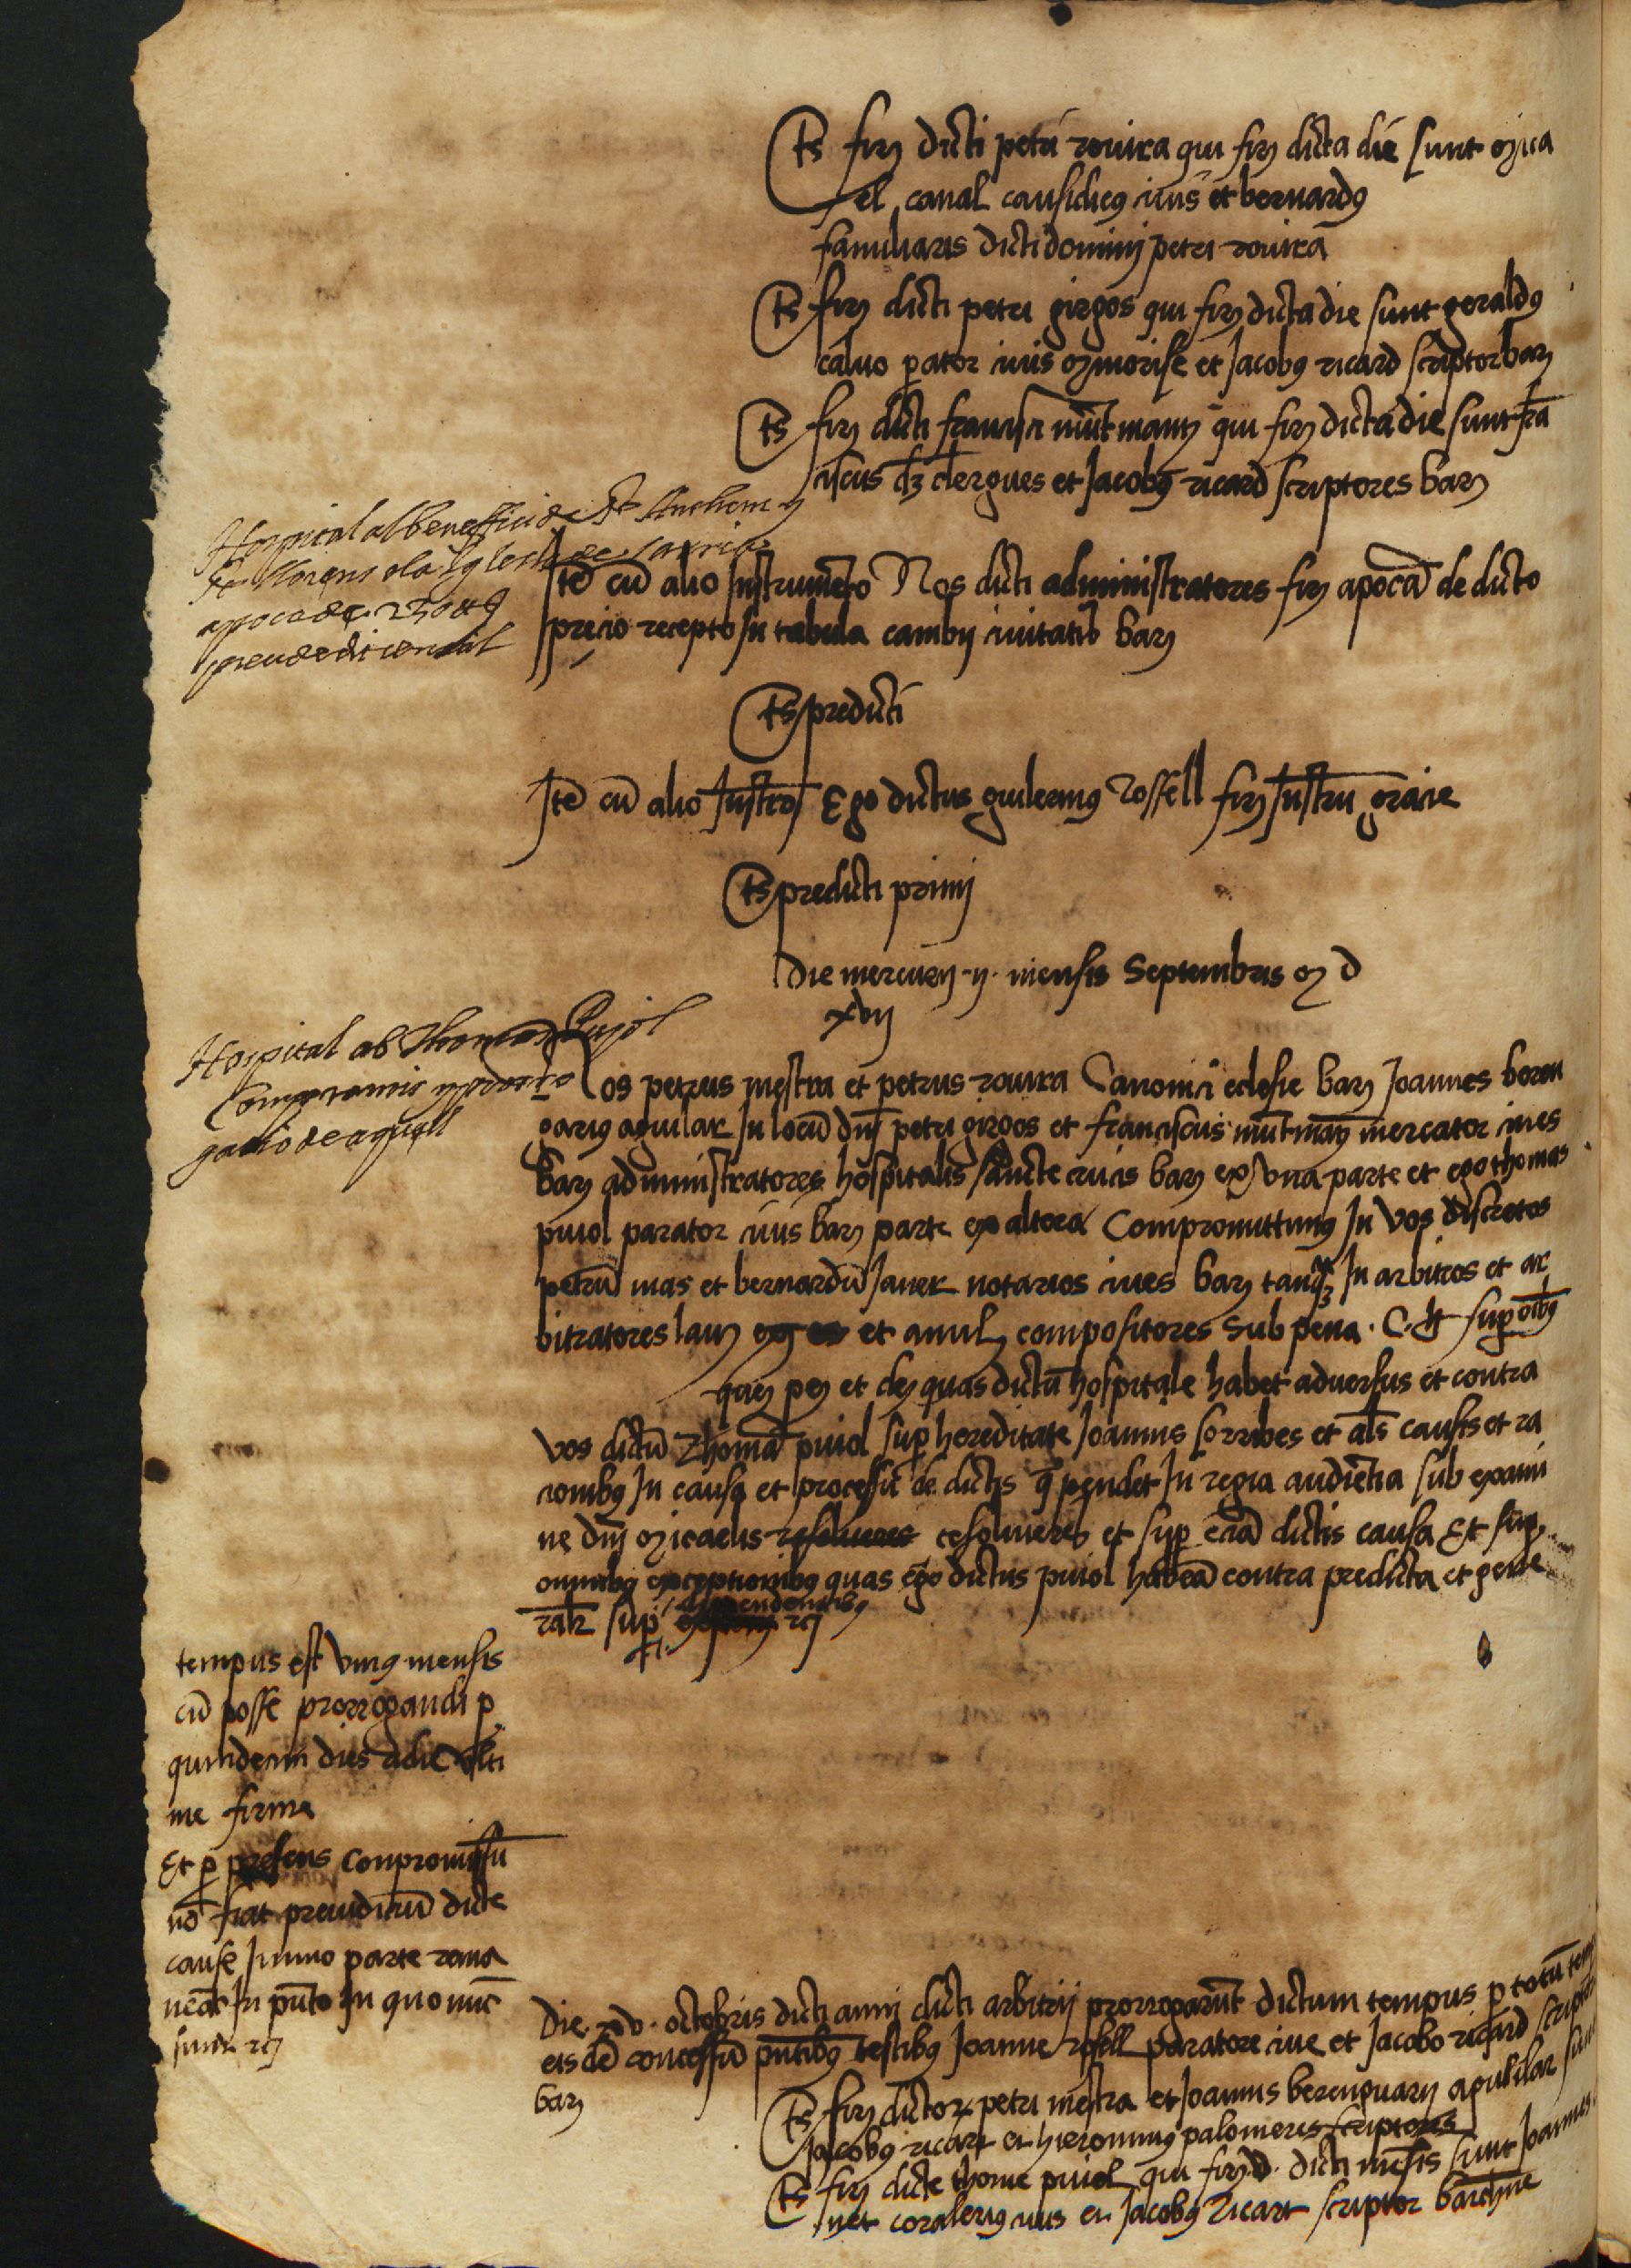 Ts firm dicti petri rovira qui firm dicta die sunt mica
el canal causidicus civis et bernardus
familiaris dicti domini petri rovira
Ts firm dicti petri girgos qui firm dicta die sunt geraldus
calvo parator civis minorise et Jacobus ricard scriptor barn
Ts firm dicti francisci muntmany qui firm dicta die sunt fran
ciscus de clergues et Jacobus ricard scriptores barn
Hospital al beneffici de St Anthoni y
St Llorens ola Iglesia de
apoca de
preu de dit censal
Ite cu alio Instrumeto Nos dicti administratores firm apoca de dicto
precio recepto In tabula cambij civitatis barn
Ts predicti
Ite cu alio Instro Ego dictus guilermus Rossell firm Instru gracie
Ts predicti primi
Die mercurij ij mensis Septembris M D
xvij
Hospital ab Thomas Pujol
Compromis y prorro
gatio de aquell
Nos petrus mestra et petrus rovira Canonici eclesie barn Joannes beren
garius aguilar In locu dni petri girgos et franciscus muntmany mercator cives
barn administratores hospitalis sancte crucis barn ex una parte et ego thomas
puiol parator civis barn parte ex altera Compromittimus In vos discretos
petru mas et bernardu Janer notarios cives barn tanq In arbitros et ar
bitratores laun et amilz compositores sub pena C. sup oibus
quen pen et den quas dictu hospitale habet adversus et contra
vos dictu Thoma puiol sup hereditate Joannis sorribes et als causis et ra
cionibus In causa et processu de dictis q pendet In regia audietia sub exami
ne dni micaelis et sup eciam dictis causa Et sup
omnibus exceptionibus quas ego dictus puiol habea contra predicta et gene
ralr sup dependentibus rc
tempus est unius mensis
cu posse prorrogandi p
quindecim dies a die ulti
me firme
Et p presens compromissu
no fiat preiudiciu dicte
cause Immo parte rema
neat In puto In quo nuc
sunt rc
Die xv octobris dicti anni dicti arbitrij prorrogarut dictum tempus p totu temp
eisde concessu pntibus testibus Joanne rosell paratore cive et Jacobo ricard scriptor
barn
Ts firm dictor petri mestra et Joannis berenguarij aguilar sunt
Jacobus ricart et hieronimus palomeres scriptores
Ts firm dicte thome puiol qui firm dicti mensis sunt Joannes
coralerius civis et Jacobus Ricart scriptor barchne